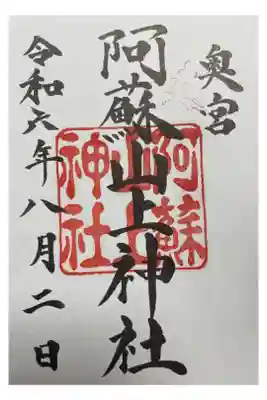 奥宮
阿蘇山上神社
阿蘇
山上
神社
令和六年八月二日